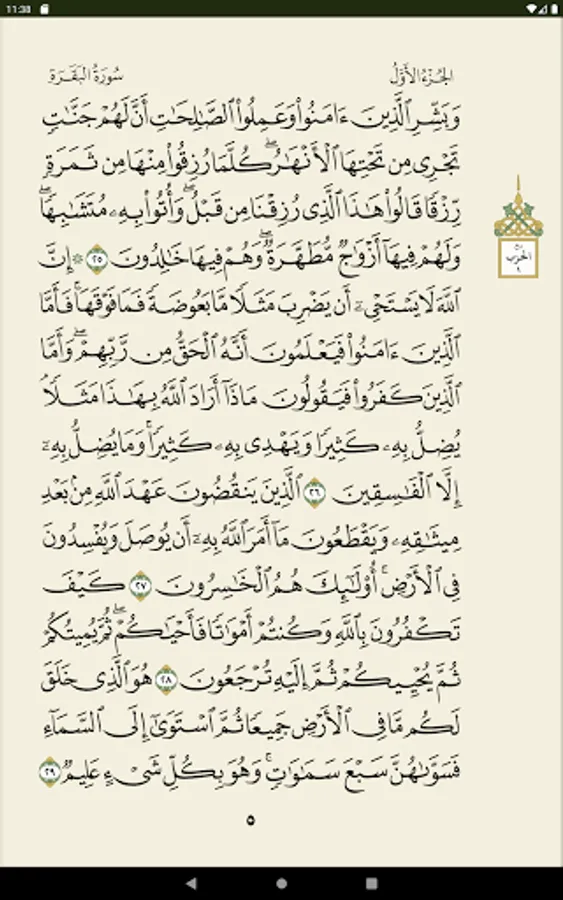 11:38
الجُزْءُ الأَوَّلُ
سُورَةُ البَقَرَةِ
وَبَشِّرِ ٱلَّذِينَ ءَامَنُواْ وَعَمِلُواْ ٱلصَّٰلِحَٰتِ أَنَّ لَهُمْ جَنَّٰتٍ
تَجْرِى مِن تَحْتِهَا ٱلْأَنْهَٰرُ ۖ كُلَّمَا رُزِقُواْ مِنْهَا مِن ثَمَرَةٍ
رِّزْقًا قَالُواْ هَٰذَا ٱلَّذِى رُزِقْنَا مِن قَبْلُ ۖ وَأُتُواْ بِهِۦ مُتَشَٰبِهًا ۖ
وَلَهُمْ فِيهَآ أَزْوَٰجٌ مُّطَهَّرَةٌ ۖ وَهُمْ فِيهَا خَٰلِدُونَ ٢٥ ۞ إِنَّ
ٱللَّهَ لَا يَسْتَحْىِۦٓ أَن يَضْرِبَ مَثَلًا مَّا بَعُوضَةً فَمَا فَوْقَهَا ۚ فَأَمَّا
ٱلَّذِينَ ءَامَنُواْ فَيَعْلَمُونَ أَنَّهُ ٱلْحَقُّ مِن رَّبِّهِمْ ۖ وَأَمَّا
ٱلَّذِينَ كَفَرُواْ فَيَقُولُونَ مَاذَآ أَرَادَ ٱللَّهُ بِهَٰذَا مَثَلًا ۘ
يُضِلُّ بِهِۦ كَثِيرًا وَيَهْدِى بِهِۦ كَثِيرًا ۚ وَمَا يُضِلُّ بِهِۦٓ
إِلَّا ٱلْفَٰسِقِينَ ٢٦ ٱلَّذِينَ يَنقُضُونَ عَهْدَ ٱللَّهِ مِنۢ بَعْدِ
مِيثَٰقِهِۦ وَيَقْطَعُونَ مَآ أَمَرَ ٱللَّهُ بِهِۦٓ أَن يُوصَلَ وَيُفْسِدُونَ
فِى ٱلْأَرْضِ ۚ أُوْلَٰٓئِكَ هُمُ ٱلْخَٰسِرُونَ ٢٧ كَيْفَ
تَكْفُرُونَ بِٱللَّهِ وَكُنتُمْ أَمْوَٰتًا فَأَحْيَٰكُمْ ۖ ثُمَّ يُمِيتُكُمْ
ثُمَّ يُحْيِيكُمْ ثُمَّ إِلَيْهِ تُرْجَعُونَ ٢٨ هُوَ ٱلَّذِى خَلَقَ
لَكُم مَّا فِى ٱلْأَرْضِ جَمِيعًا ثُمَّ ٱسْتَوَىٰٓ إِلَى ٱلسَّمَآءِ
فَسَوَّىٰهُنَّ سَبْعَ سَمَٰوَٰتٍ ۚ وَهُوَ بِكُلِّ شَىْءٍ عَلِيمٌ ٢٩
الحزب
٥